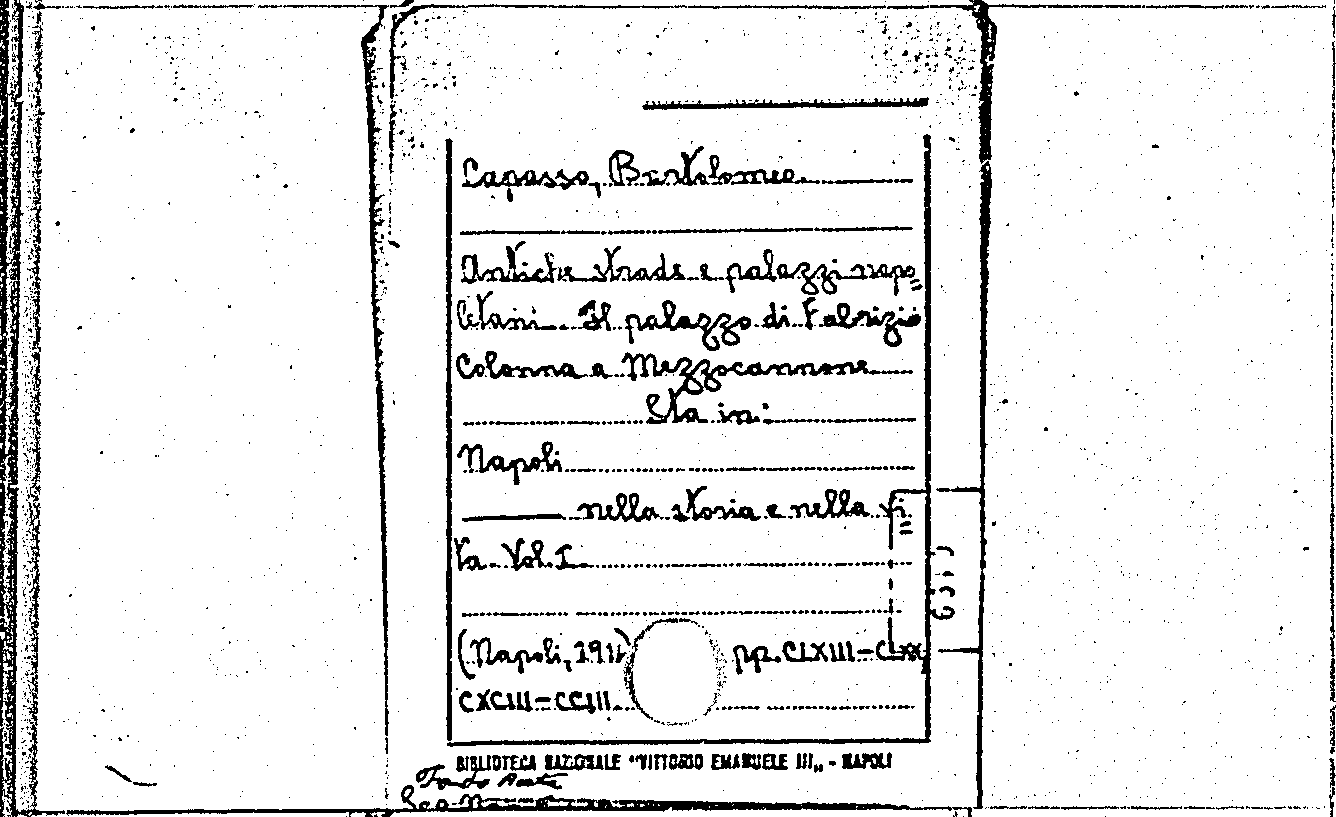 Capasso, Bartolomeo.
Antiche strade e palazzi napo=
letani. Il palazzo di Fabrizio
Colonna a Mezzocannone
Sta in:
Napoli
——— nella storia e nella vi=
ta. Vol. I.
(Napoli, pp. CLXIII-CLXX
CXCIII-CCIII.
BIBLIOTECA NAZIONALE "VITTORIO EMANUELE III„ - NAPOLI